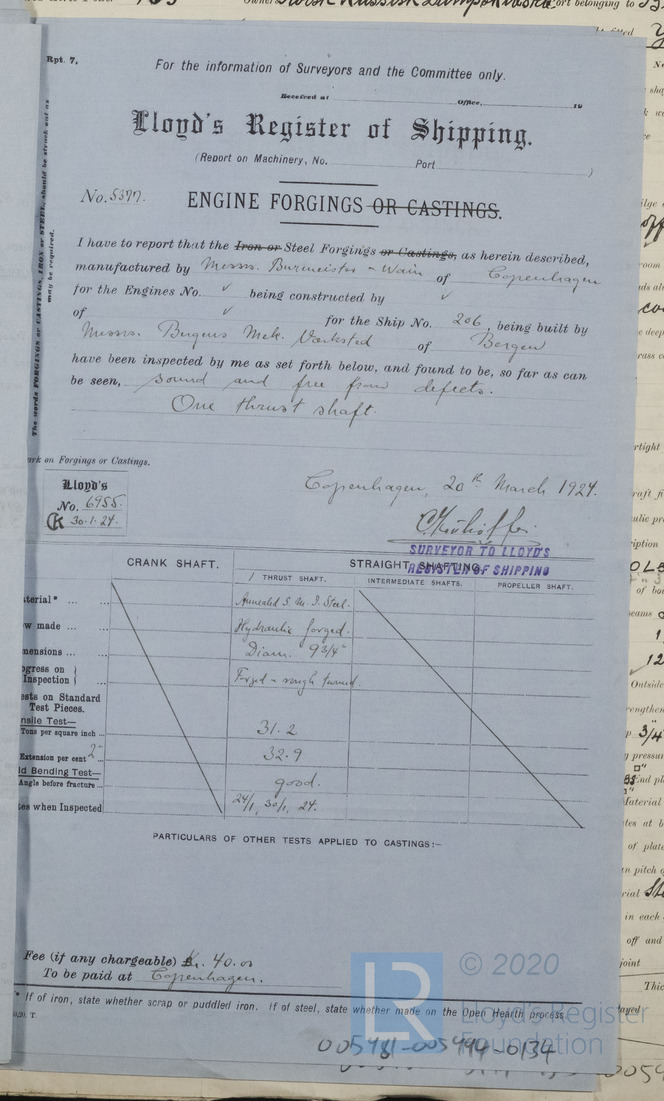 Rpt. 7.
For the information of Surveyors and the Committee only.
Received at Office, 19
Lloyd's Register of Shipping.
(Report on Machinery, No. Port )
No. 5377.
ENGINE FORGINGS OR CASTINGS.
The words FORGINGS or CASTINGS, IRON or STEEL, should be struck out as
may be required.
I have to report that the Iron or Steel Forgings or Castings, as herein described,
manufactured by Messrs. Burmeister & Wain of Copenhagen
for the Engines No. ✓ being constructed by ✓
of ✓ for the Ship No. 206, being built by
Messrs. Bergens Mek. Værksted of Bergen
have been inspected by me as set forth below, and found to be, so far as can
be seen, sound and free from defects.
One thrust shaft.
rk on Forgings or Castings.
Lloyd's
No. 6955
30.1.24.
Copenhagen, 20th March 1924.
SURVEYOR TO LLOYD'S
REGISTER OF SHIPPING
CRANK SHAFT. STRAIGHT SHAFTING.
THRUST SHAFT. INTERMEDIATE SHAFTS. PROPELLER SHAFT.
terial* Annealed S. M. I. Steel.
w made Hydraulic forged.
mensions Diam. 9 3/4"
ogress on
Inspection Forged & rough turned.
ests on Standard
Test Pieces.
nsile Test—
Tons per square inch 31.2
Extension per cent 2" 32.9
ld Bending Test—
Angle before fracture good.
es when Inspected 24/1, 30/1, 24.
PARTICULARS OF OTHER TESTS APPLIED TO CASTINGS:—
Fee (if any chargeable) Kr. 40.00
To be paid at Copenhagen.
* If of iron, state whether scrap or puddled iron. If of steel, state whether made on the Open Hearth process.
020. T.
LR
© 2020
Lloyd's Register
Foundation
005481-005494-0134